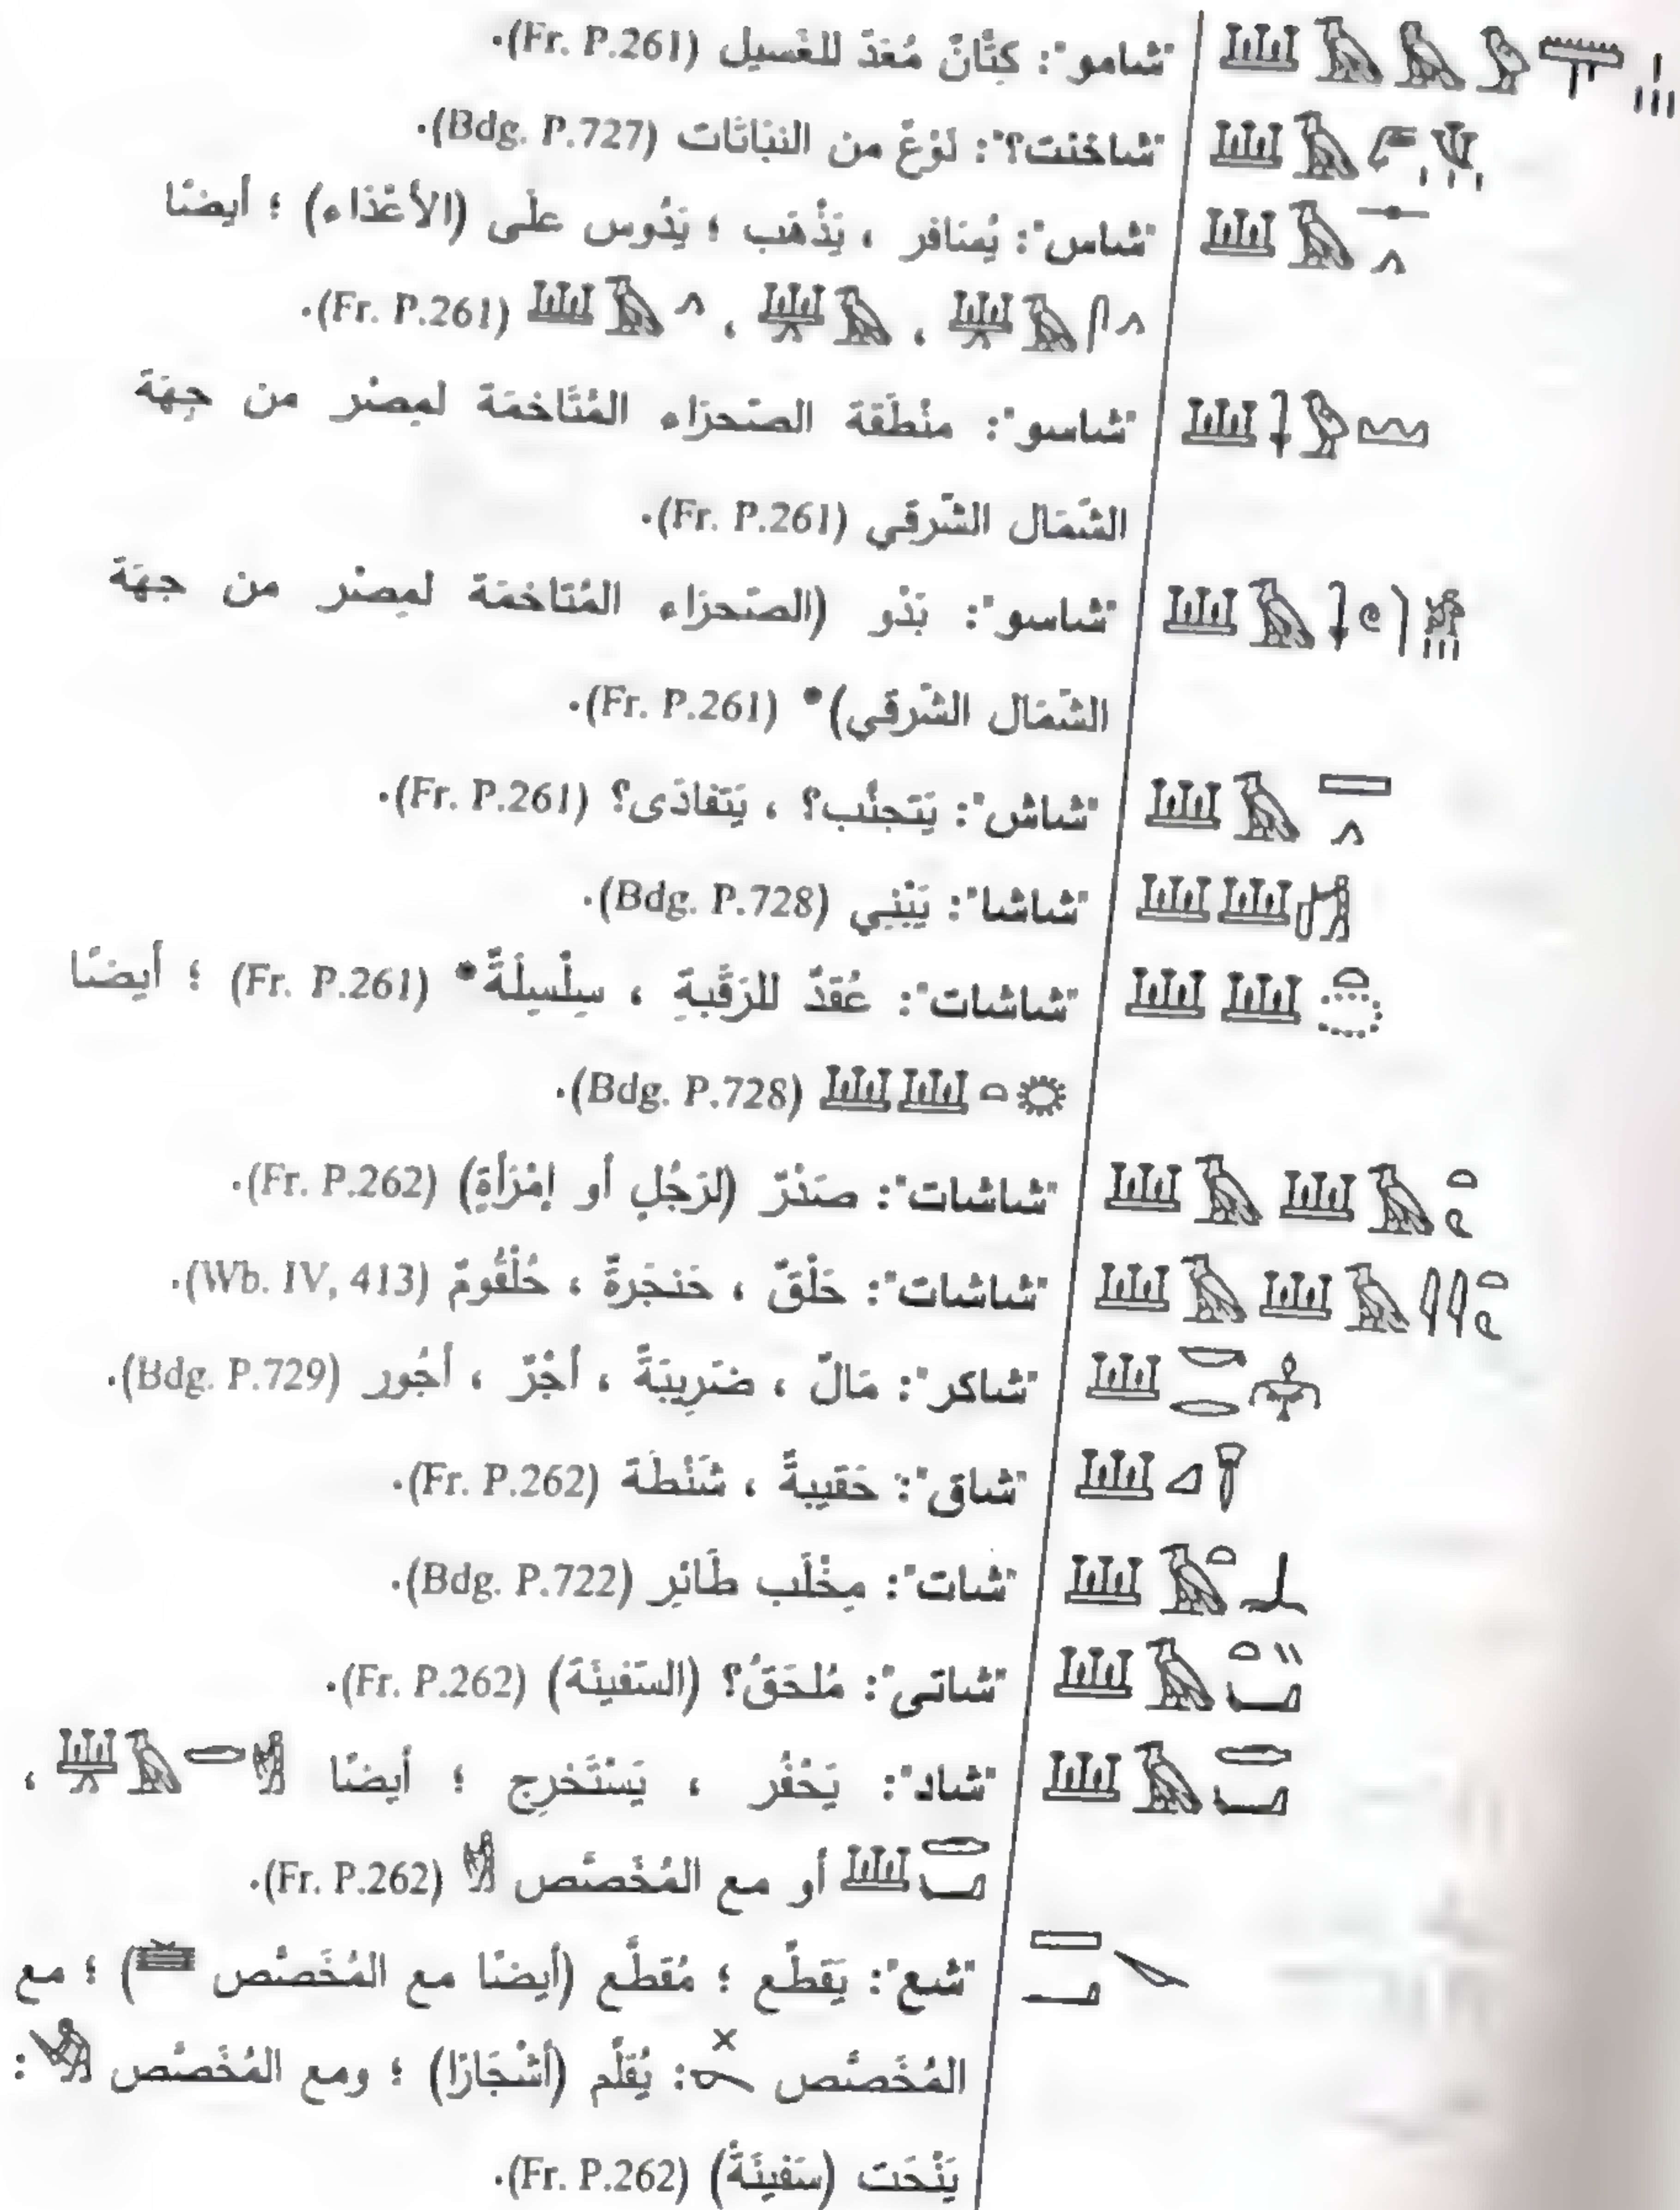 "شامو": كِتَّانٌ مُعَدّ للغَسيل (Fr. P.261).
"شاخنت؟": نَوْعٌ من النبَاتَات (Bdg. P.727).
"شاس": يُسَافر ، يَذْهَب ؛ يَدُوس علَى (الأعْدَاء) ؛ أيضًا
، ، (Fr. P.261).
"شاسو": منْطَقَة الصّحرَاء المُتَاخمَة لمِصْر من جِهَة
الشّمَال الشّرقِي (Fr. P.261).
"شاسو": بَدْو (الصّحرَاء المُتَاخمَة لمِصْر من جهَة
الشّمَال الشّرقي)* (Fr. P.261).
"شاش": يَتَجنَّب؟ ، يَتَفادَى؟ (Fr. P.261).
"شاشا": يَبْنِي (Bdg. P.728).
"شاشات": عُقدٌ للرَقَبةِ ، سِلْسِلَةٌ* (Fr. P.261) ؛ أيضًا
(Bdg. P.728).
"شاشات": صَدْرٌ (لرَجُلٍ أو إمْرَأةٍ) (Fr. P.262).
"شاشات": حَلْقٌ ، حَنجَرةٌ ، حُلْقُومٌ (Wb. IV, 413).
"شاكر": مَالٌ ، ضَرِيبَةٌ ، أجْرٌ ، أجُور (Bdg. P.729).
"شاق": حَقيبةٌ ، شَنْطَة (Fr. P.262).
"شات": مِخْلَب طَائِر (Bdg. P.722).
"شاتى": مُلحَقُ؟ (السّفينَة) (Fr. P.262).
"شاد": يَحْفُر ، يَسْتَخرِج ؛ أيضًا ،
أو مع المُخَصّص (Fr. P.262).
"شع": يَقطَّع ؛ مُقطَّع (أيضًا مع المُخَصّص ) ؛ مع
المُخَصّص : يُقَلّم (أشْجَارًا) ؛ ومع المُخَصّص :
يَنْحَت (سَفينَةً) (Fr. P.262).